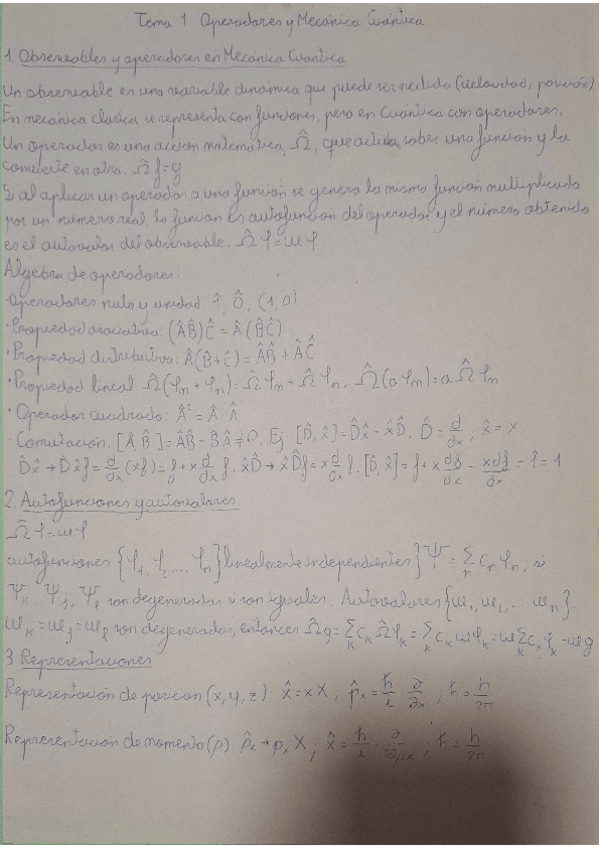 Tema 1 Operadores y Mecánica Cuántica
1. Observables y operadores en Mecánica Cuántica
Un observable es una variable dinámica que puede ser medida (velocidad, posición)
En mecánica clásica se representa con funciones, pero en Cuántica con operadores.
Un operador es una acción matemática, Ω̂, que actúa sobre una función y la
convierte en otra. Ω̂ f = g
Si al aplicar un operador a una función se genera la misma función multiplicada
por un número real, la función es autofunción del operador y el número obtenido
es el autovalor del observable. Ω̂ φ = ω φ
Algebra de operadores:
· Operadores nulo y unidad 1̂, 0̂, (1,0)
· Propiedad asociativa: (ÂB̂)Ĉ = Â(B̂Ĉ)
· Propiedad distributiva: Â(B̂+Ĉ) = ÂB̂ + ÂĈ
· Propiedad lineal Ω̂(φm + φn) = Ω̂φm + Ω̂φn. Ω̂(aφm) = aΩ̂φm
· Operador cuadrado: Â² = Â·Â
· Comutación. [Â,B̂] = ÂB̂ - B̂Â ≠ 0. Ej [D̂,x̂] = D̂x̂ - x̂D̂. D̂ = d/dx; x̂ = x.
D̂x̂ → D̂x̂f = d/dx (xf) = f + x d/dx f. x̂D̂ → x̂D̂f = x d/dx f. [D̂,x̂] = f + x df/dx - xdf/dx = f = 1
2. Autofunciones y autovalores
Ω̂ φ = ω φ
autofunciones {φ1, φ2 ... φn} linealmente independientes } Ψ = Σn cn φn; si
Ψk, Ψj, Ψl son degeneradas si son iguales. Autovalores {ω1, ω2, ... ωn}.
ωk = ωj = ωl son degeneradas, entonces Ω̂g = Σk ck Ω̂φk = Σk ck ωφk = ω Σk ck φk = ωg
3 Representaciones
Representación de posición (x, y, z): x̂ = x X, p̂x = ħ/i · ∂/∂x; ħ = h/2π
Representación de momento (p): p̂x → px X; x̂ = ħ/i · ∂/∂px, ħ = h/2π